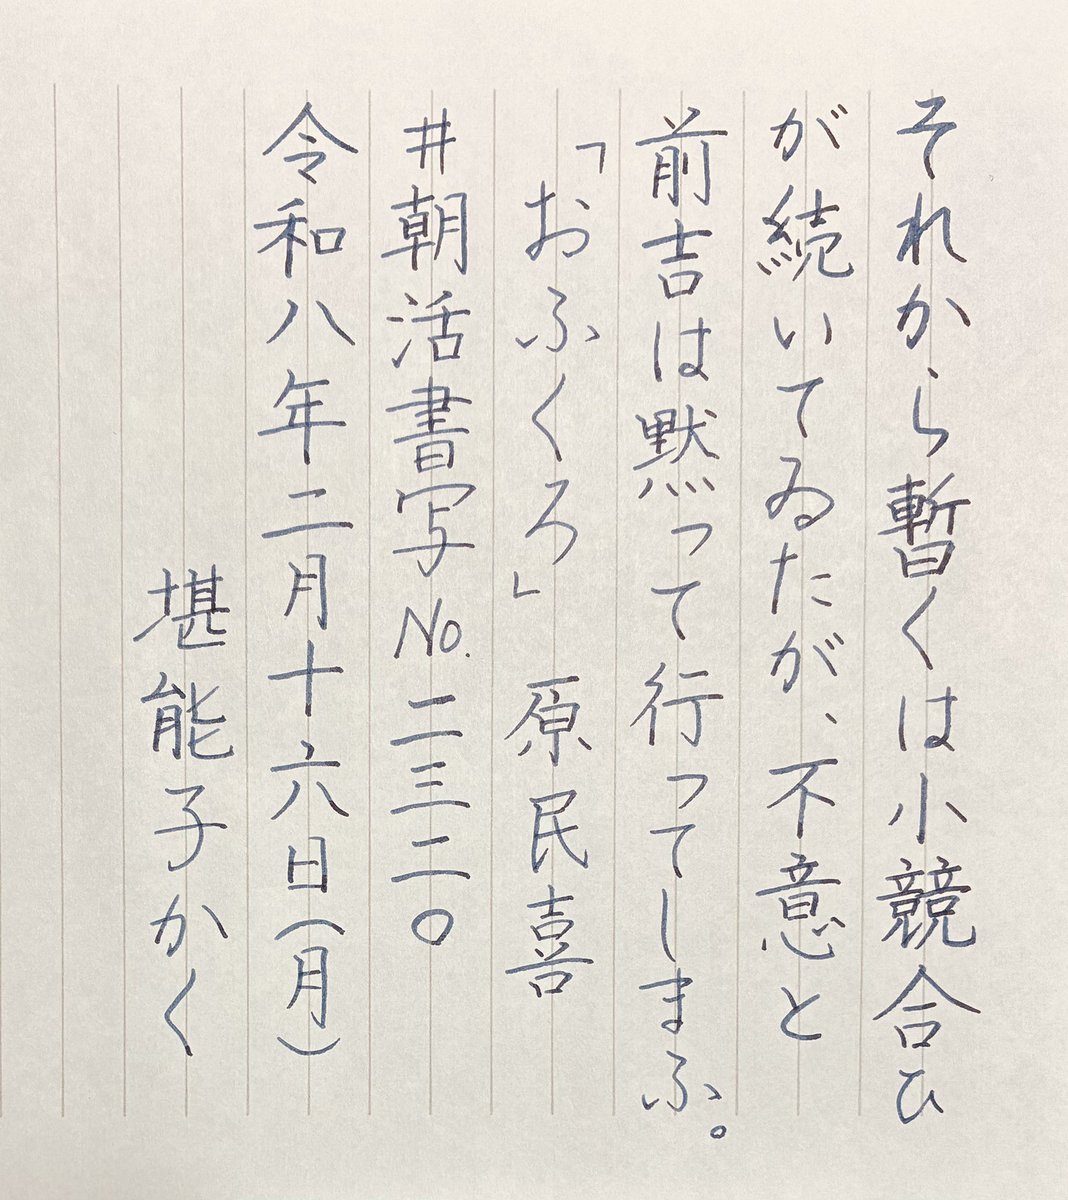 それから暫くは小競合ひ
が続いてゐたが、不意と
前吉は黙って行ってしまふ。
「おふくろ」 原民喜
#朝活書写No.二三二〇
令和八年二月十六日(月)
堪能子かく